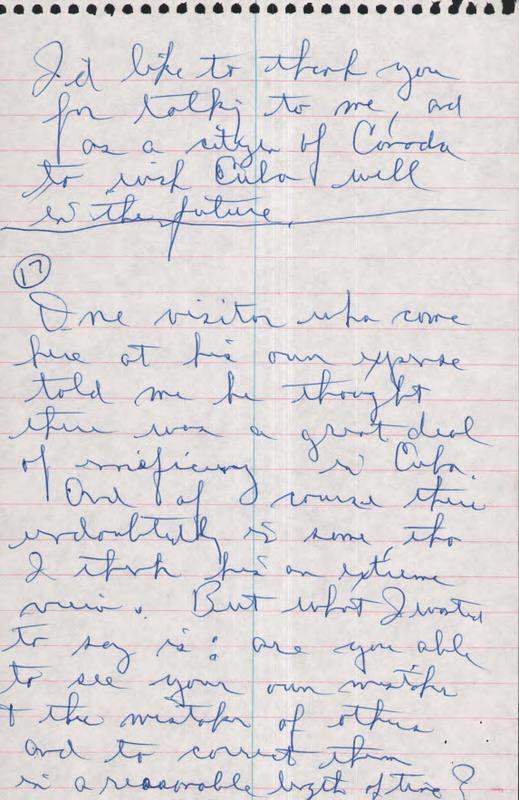 I'd like to thank you
for talking to me, and
as a citizen of Canada
to wish Cuba well
in the future.
17
One visitor who came
here at his own expense
told me he thought
there was a great deal
of inefficiency in Cuba.
And of course there
undoubtedly is some, tho
I think his an extreme
view. But what I wanted
to say is: are you able
to see your own mistakes
+ the mistakes of others
and to correct them
in a reasonable length of time?